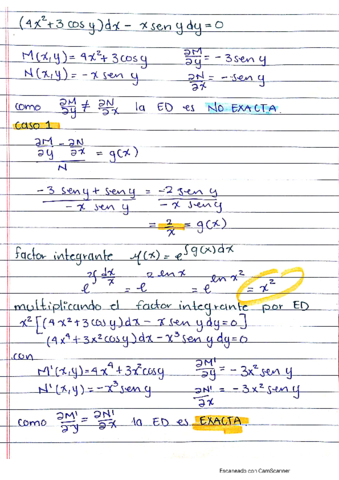 (4x²+3 cos y)dx - x sen y dy = 0
M(x,y) = 4x²+3 cos y    ∂M/∂y = -3 sen y
N(x,y) = -x sen y    ∂N/∂x = -sen y
como ∂M/∂y ≠ ∂N/∂x la ED es NO EXACTA.
caso 1
(∂M/∂y - ∂N/∂x)/N = g(x)
(-3 sen y + sen y)/(-x sen y) = (-2 sen y)/(-x sen y)
= 2/x = g(x)
factor integrante μ(x) = e^∫g(x)dx
e^2∫dx/x = e^2 ln x = e^ln x² = x²
multiplicando el factor integrante por ED
x²[(4x²+3 cos y)dx - x sen y dy = 0]
(4x⁴+3x² cos y)dx - x³ sen y dy = 0
con
M'(x,y) = 4x⁴+3x² cos y    ∂M'/∂y = -3x² sen y
N'(x,y) = -x³ sen y    ∂N'/∂x = -3x² sen y
como ∂M'/∂y = ∂N'/∂x la ED es EXACTA.
Escaneado con CamScanner